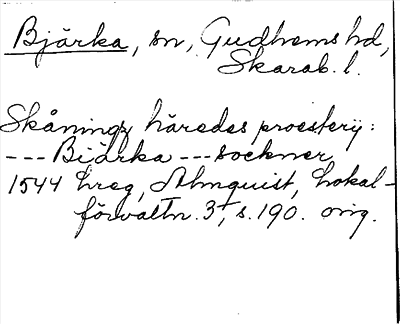 Bjärka, sn, Gudhems hd,
Skarab. l.
Skånings häredes proesterij:
--- Biärka --- sockner
1544 hreg, Almquist, Lokal-
förvaltn. 3, s. 190. orig.